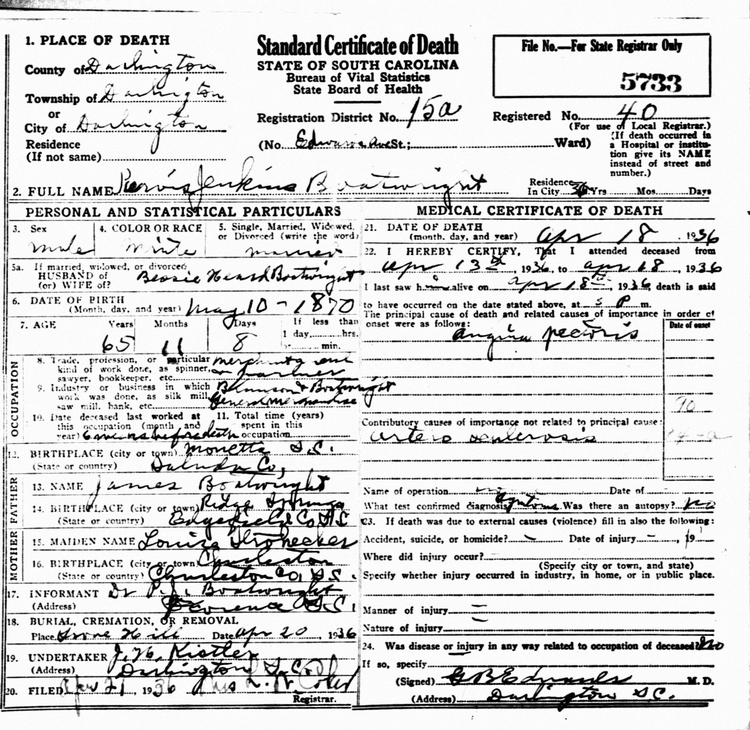 1. PLACE OF DEATH
County of Darlington
Township of Darlington
or
City of Darlington
Residence
(If not same)
Standard Certificate of Death
STATE OF SOUTH CAROLINA
Bureau of Vital Statistics
State Board of Health
Registration District No. 15a
(No. Edwards Ave St.; Ward)
File No.—For State Registrar Only
5733
Registered No. 40
(For use of Local Registrar.)
(If death occurred in
a Hospital or institu-
tion give its NAME
instead of street and
number.)
2. FULL NAME Jenkins Boatwright
Residence
In City Yrs. Mos. Days
PERSONAL AND STATISTICAL PARTICULARS
3. Sex 4. COLOR OR RACE 5. Single, Married, Widowed,
or Divorced (write the word)
male white married
5a. If married, widowed, or divorced
HUSBAND of
(or) WIFE of? Bessie Heard Boatwright
6. DATE OF BIRTH
(Month, day, and year) may 10 - 1870
7. AGE Years Months Days If less than
1 day, hrs.
or min.
65 11 8
OCCUPATION
8. Trade, profession, or particular
kind of work done, as spinner,
sawyer, bookkeeper, etc. merchant and farmer
9. Industry or business in which
work was done, as silk mill,
saw mill, bank, etc. & Boatwright
General merchandise
10. Date deceased last worked at
this occupation (month and
year) before death
11. Total time (years)
spent in this
occupation
12. BIRTHPLACE (city or town) Monetta S.C.
(State or country) Saluda Co,
FATHER
13. NAME James Boatwright
14. BIRTHPLACE (city or town) Ridge Springs
(State or country) Edgefield Co. S.C.
MOTHER
15. MAIDEN NAME Louisa Strohecker
16. BIRTHPLACE (city or town) Charleston
(State or country) Charleston Co, S.C.
17. INFORMANT Dr P.J. Boatwright
(Address) Florence S.C.
18. BURIAL, CREMATION, OR REMOVAL
Place Grove Hill Date Apr 20, 1936
19. UNDERTAKER J. N. Kistler
(Address) Darlington S.C.
20. FILED Apr 21, 1936
Registrar.
MEDICAL CERTIFICATE OF DEATH
21. DATE OF DEATH
(month, day, and year) Apr 18, 1936
22. I HEREBY CERTIFY, That I attended deceased from
Apr 13th, 1936, to Apr 18, 1936
I last saw h alive on Apr 18th, 1936 death is said
to have occurred on the date stated above, at P m.
The principal cause of death and related causes of importance in order of
onset were as follows:
Date of onset
angina pectoris
Contributory causes of importance not related to principal cause:
arterio sclerosis
Name of operation Date of
What test confirmed diagnosis? Was there an autopsy?
23. If death was due to external causes (violence) fill in also the following:
Accident, suicide, or homicide? – Date of injury –, 19
Where did injury occur?
(Specify city or town, and state)
Specify whether injury occurred in industry, in home, or in public place.
Manner of injury
Nature of injury
24. Was disease or injury in any way related to occupation of deceased? no
If so, specify
(Signed) G B Edwards M. D.
(Address) Darlington S.C.